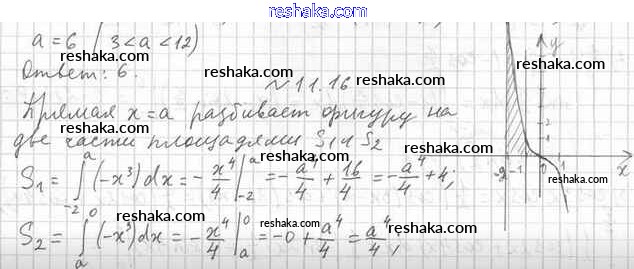 reshaka.com
a = 6 (3 < a < 12)
Ответ: 6.
reshaka.com
reshaka.com
№ 11.16
reshaka.com
Прямая x = a разбивает фигуру на
reshaka.com
две части площадями S₁ и S₂
reshaka.com
S₁ = ∫₋₂ᵃ (-x³) dx = - x⁴/4 |₋₂ᵃ = - a⁴/4 + 16/4 = - a⁴/4 + 4;
reshaka.com
reshaka.com
S₂ = ∫ₐ⁰ (-x³) dx = - x⁴/4 |ₐ⁰ = -0 + a⁴/4 = a⁴/4;
reshaka.com
reshaka.com
y
2
-2 -1 0 1 x
reshaka.com